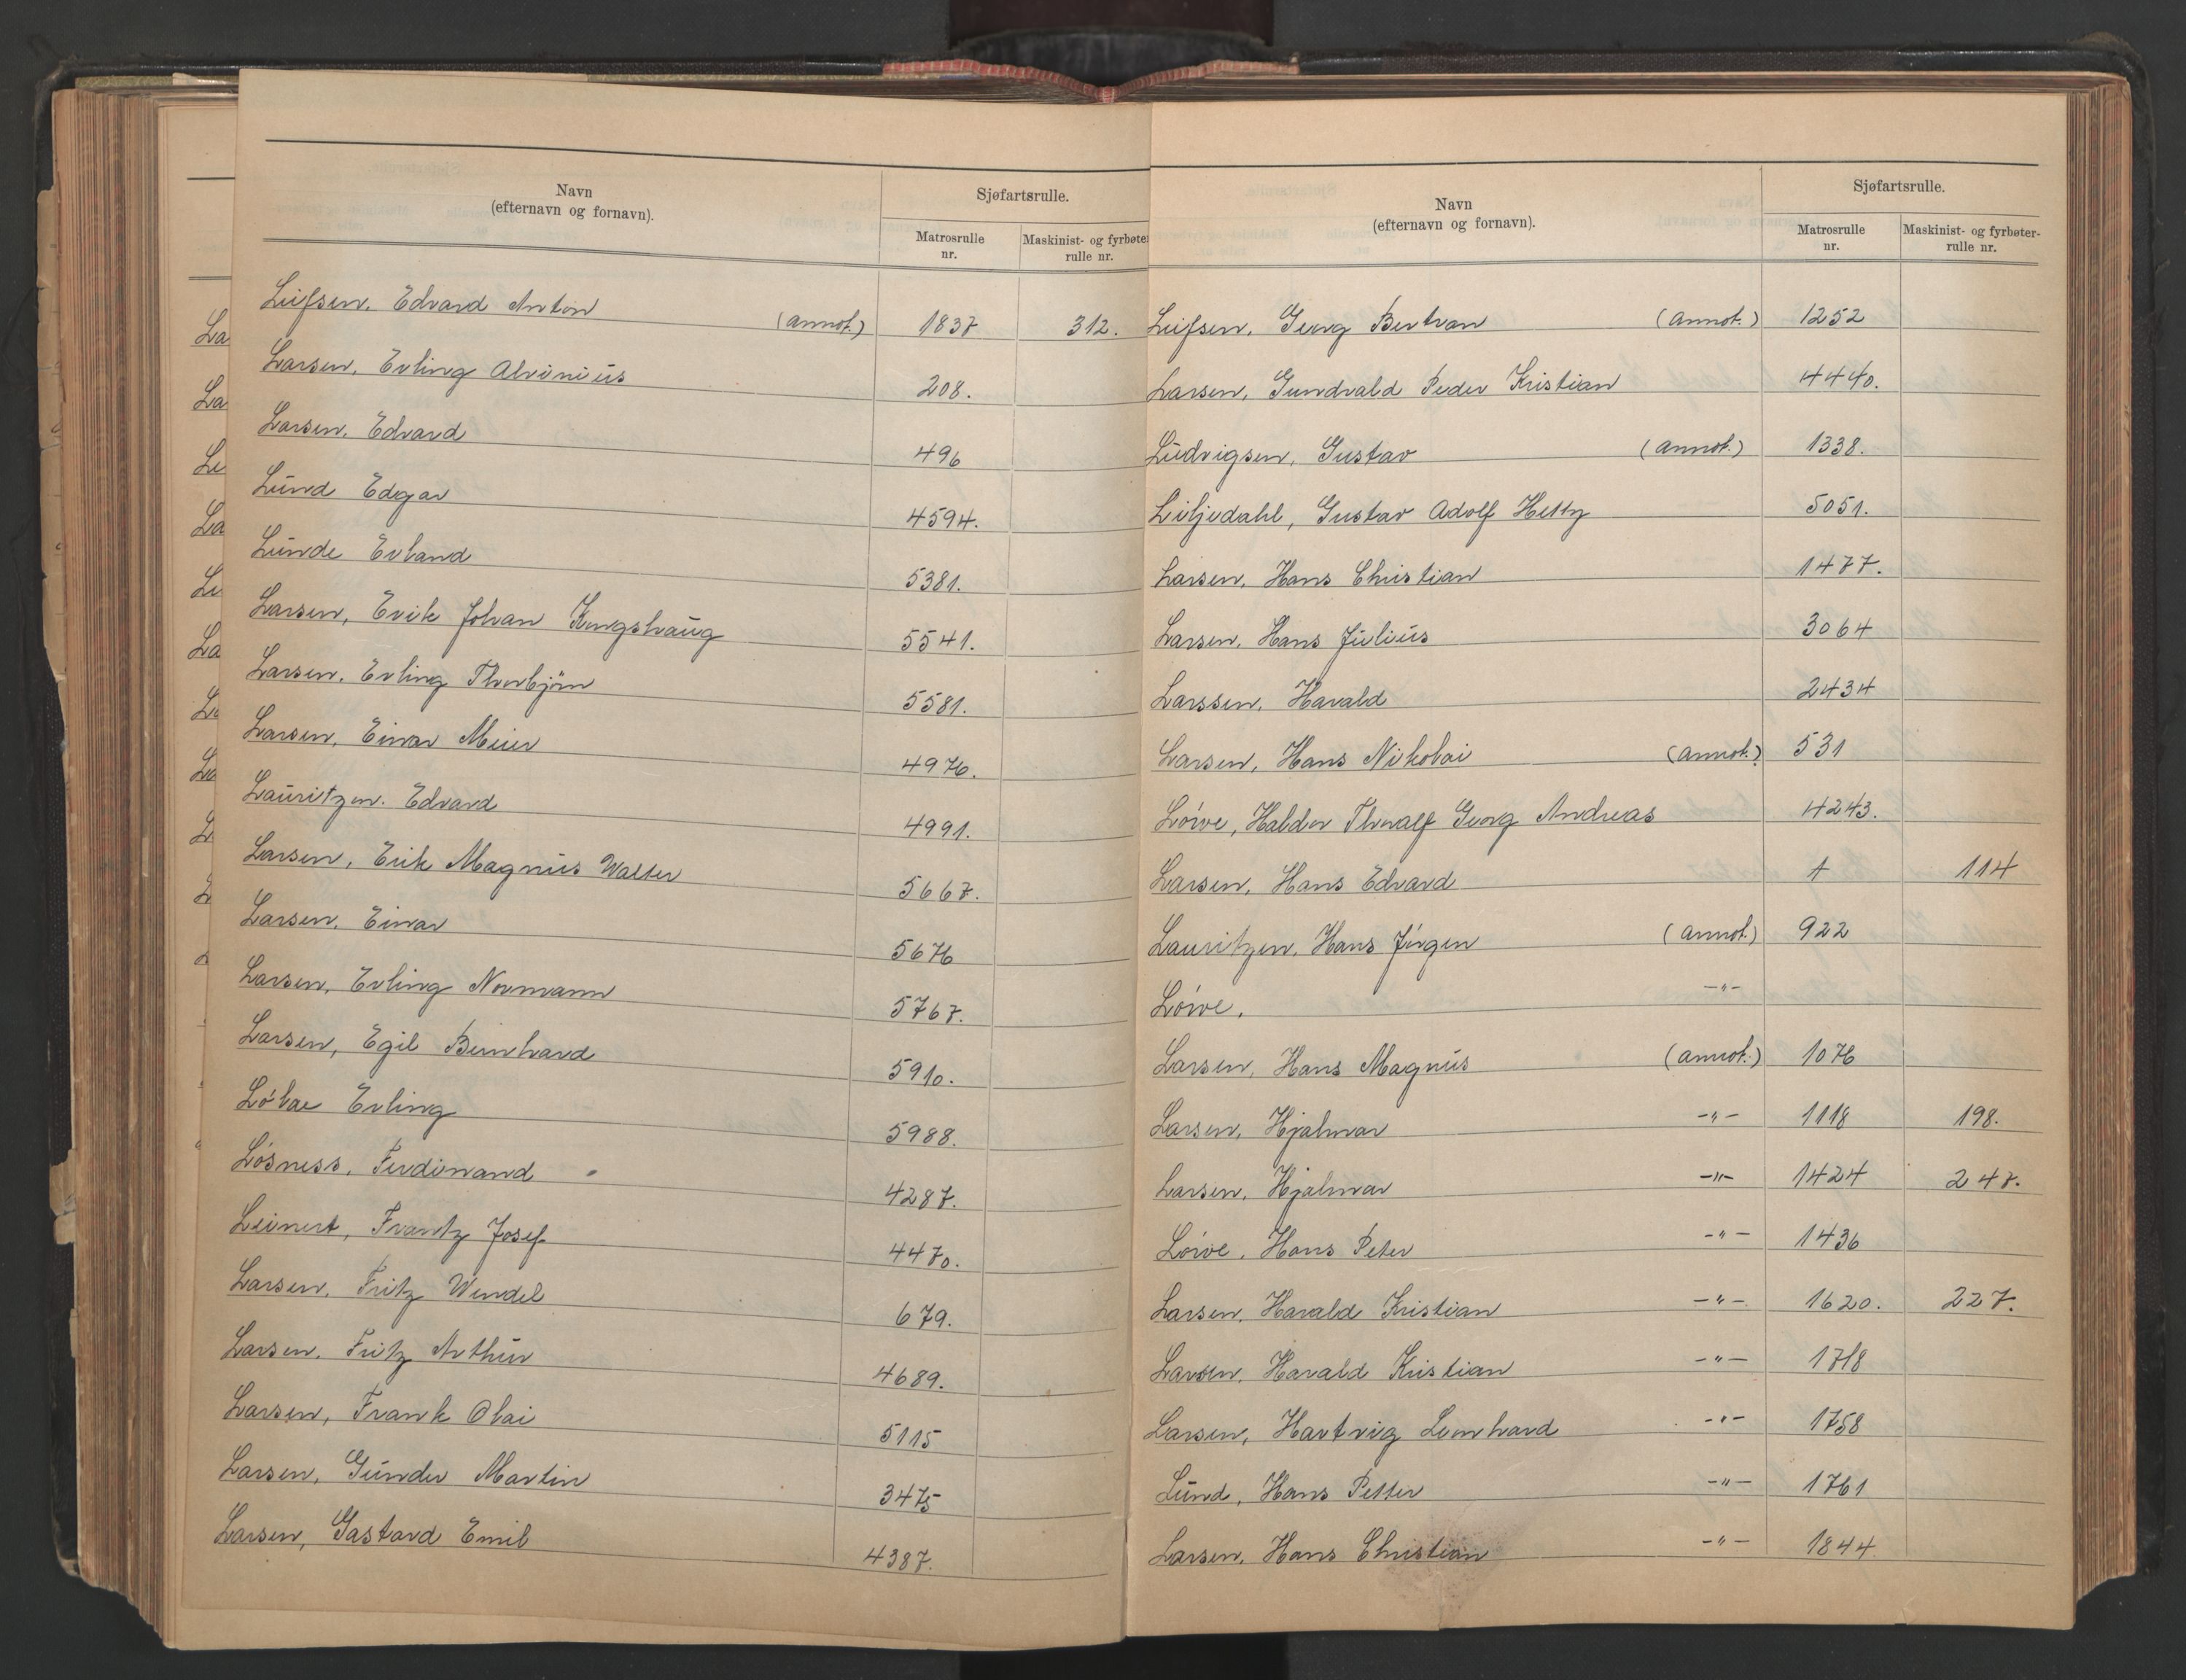 Navn
(efternavn og fornavn).
Sjøfartsrulle.
Matrosrulle nr.
Maskinist- og fyrbøter rulle nr.
Leifsen, Edvard Anton (annot.) 1837 312.
Larsen, Erling Alvinius 208.
Larsen, Edvard 496
Lund Edgar 4594.
Lunde Erland 5381.
Larsen, Erik Johan Kongshaug 5541.
Larsen, Erling Thorbjørn 5581.
Larsen, Einar Meier 4976.
Lauritzen, Edvard 4991.
Larsen, Erik Magnus Walter 5667.
Larsen, Einar 5676
Larsen, Erling Normann 5767.
Larsen, Egil Bernhard 5910.
Erling 5988.
Løsness, Ferdinand 4287.
Leinert, Frantz Josef 4470.
Larsen, Fritz Wendel 679.
Larsen, Fritz Arthur 4689.
Larsen, Frank Olai 5115
Larsen, Gunder Martin 3475
Larsen, Gastard Emil 4387.
Navn
(efternavn og fornavn).
Sjøfartsrulle.
Matrosrulle nr.
Maskinist- og fyrbøter- rulle nr.
Leifsen, Georg Bertran (annot.) 1252
Larsen, Gundvald Peder Kristian 4440.
Ludvigsen, Gustav (annot.) 1338.
Liljedahl, Gustav Adolf Hetty 5051.
Larsen, Hans Christian 1477.
Larsen, Hans Julius 3064
Larssen, Harald 2434
Larsen, Hans Nikolai (annot.) 531
Löwe, Haldor Thoralf Georg Andreas 4243.
Larsen, Hans Edvard 114
Lauritzen, Hans Jörgen (annot.) 922
Löwe, -"-
Larsen, Hans Magnus (annot.) 1076
Larsen, Hjalmar -"- 1118 198.
Larsen, Hjalmar -"- 1424 247.
Löwe, Hans Peter -"- 1436
Larsen, Harald Kristian -"- 1620. 227.
Larsen, Harald Kristian -"- 1718
Larsen, Hartvig Leonhard -"- 1758
Lund, Hans Petter -"- 1761
Larsen, Hans Christian -"- 1844